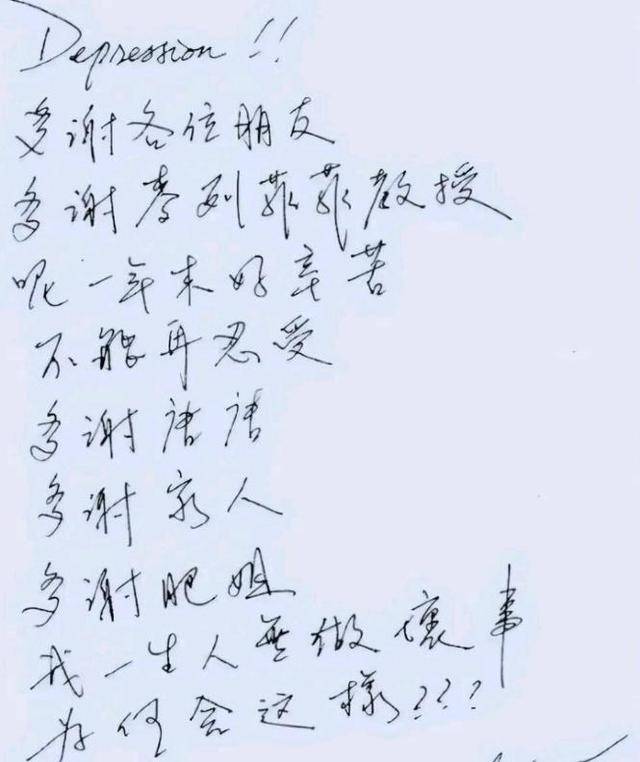 Depression!!
多谢各位朋友
多谢麥列菲菲教授
呢一年来好辛苦
不能再忍受
多谢唐唐
多谢家人
多谢肥姐
我一生人無做壞事
为何会这樣???